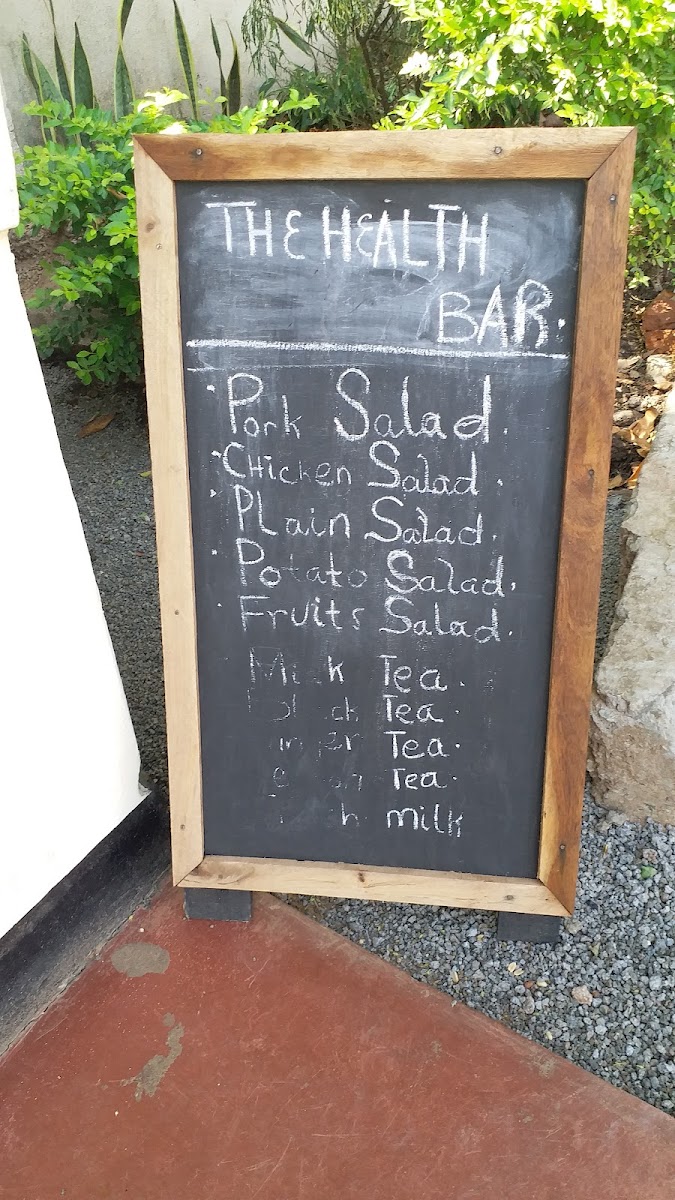 THE HEALTH
BAR.
Pork Salad.
Chicken Salad.
PLain Salad.
Potato Salad.
Fruits Salad.
Milk Tea.
Tea.
Tea.
Tea.
milk